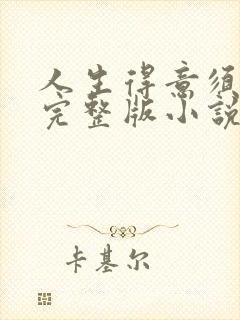 人生得意须
完整版小説
卡基尔